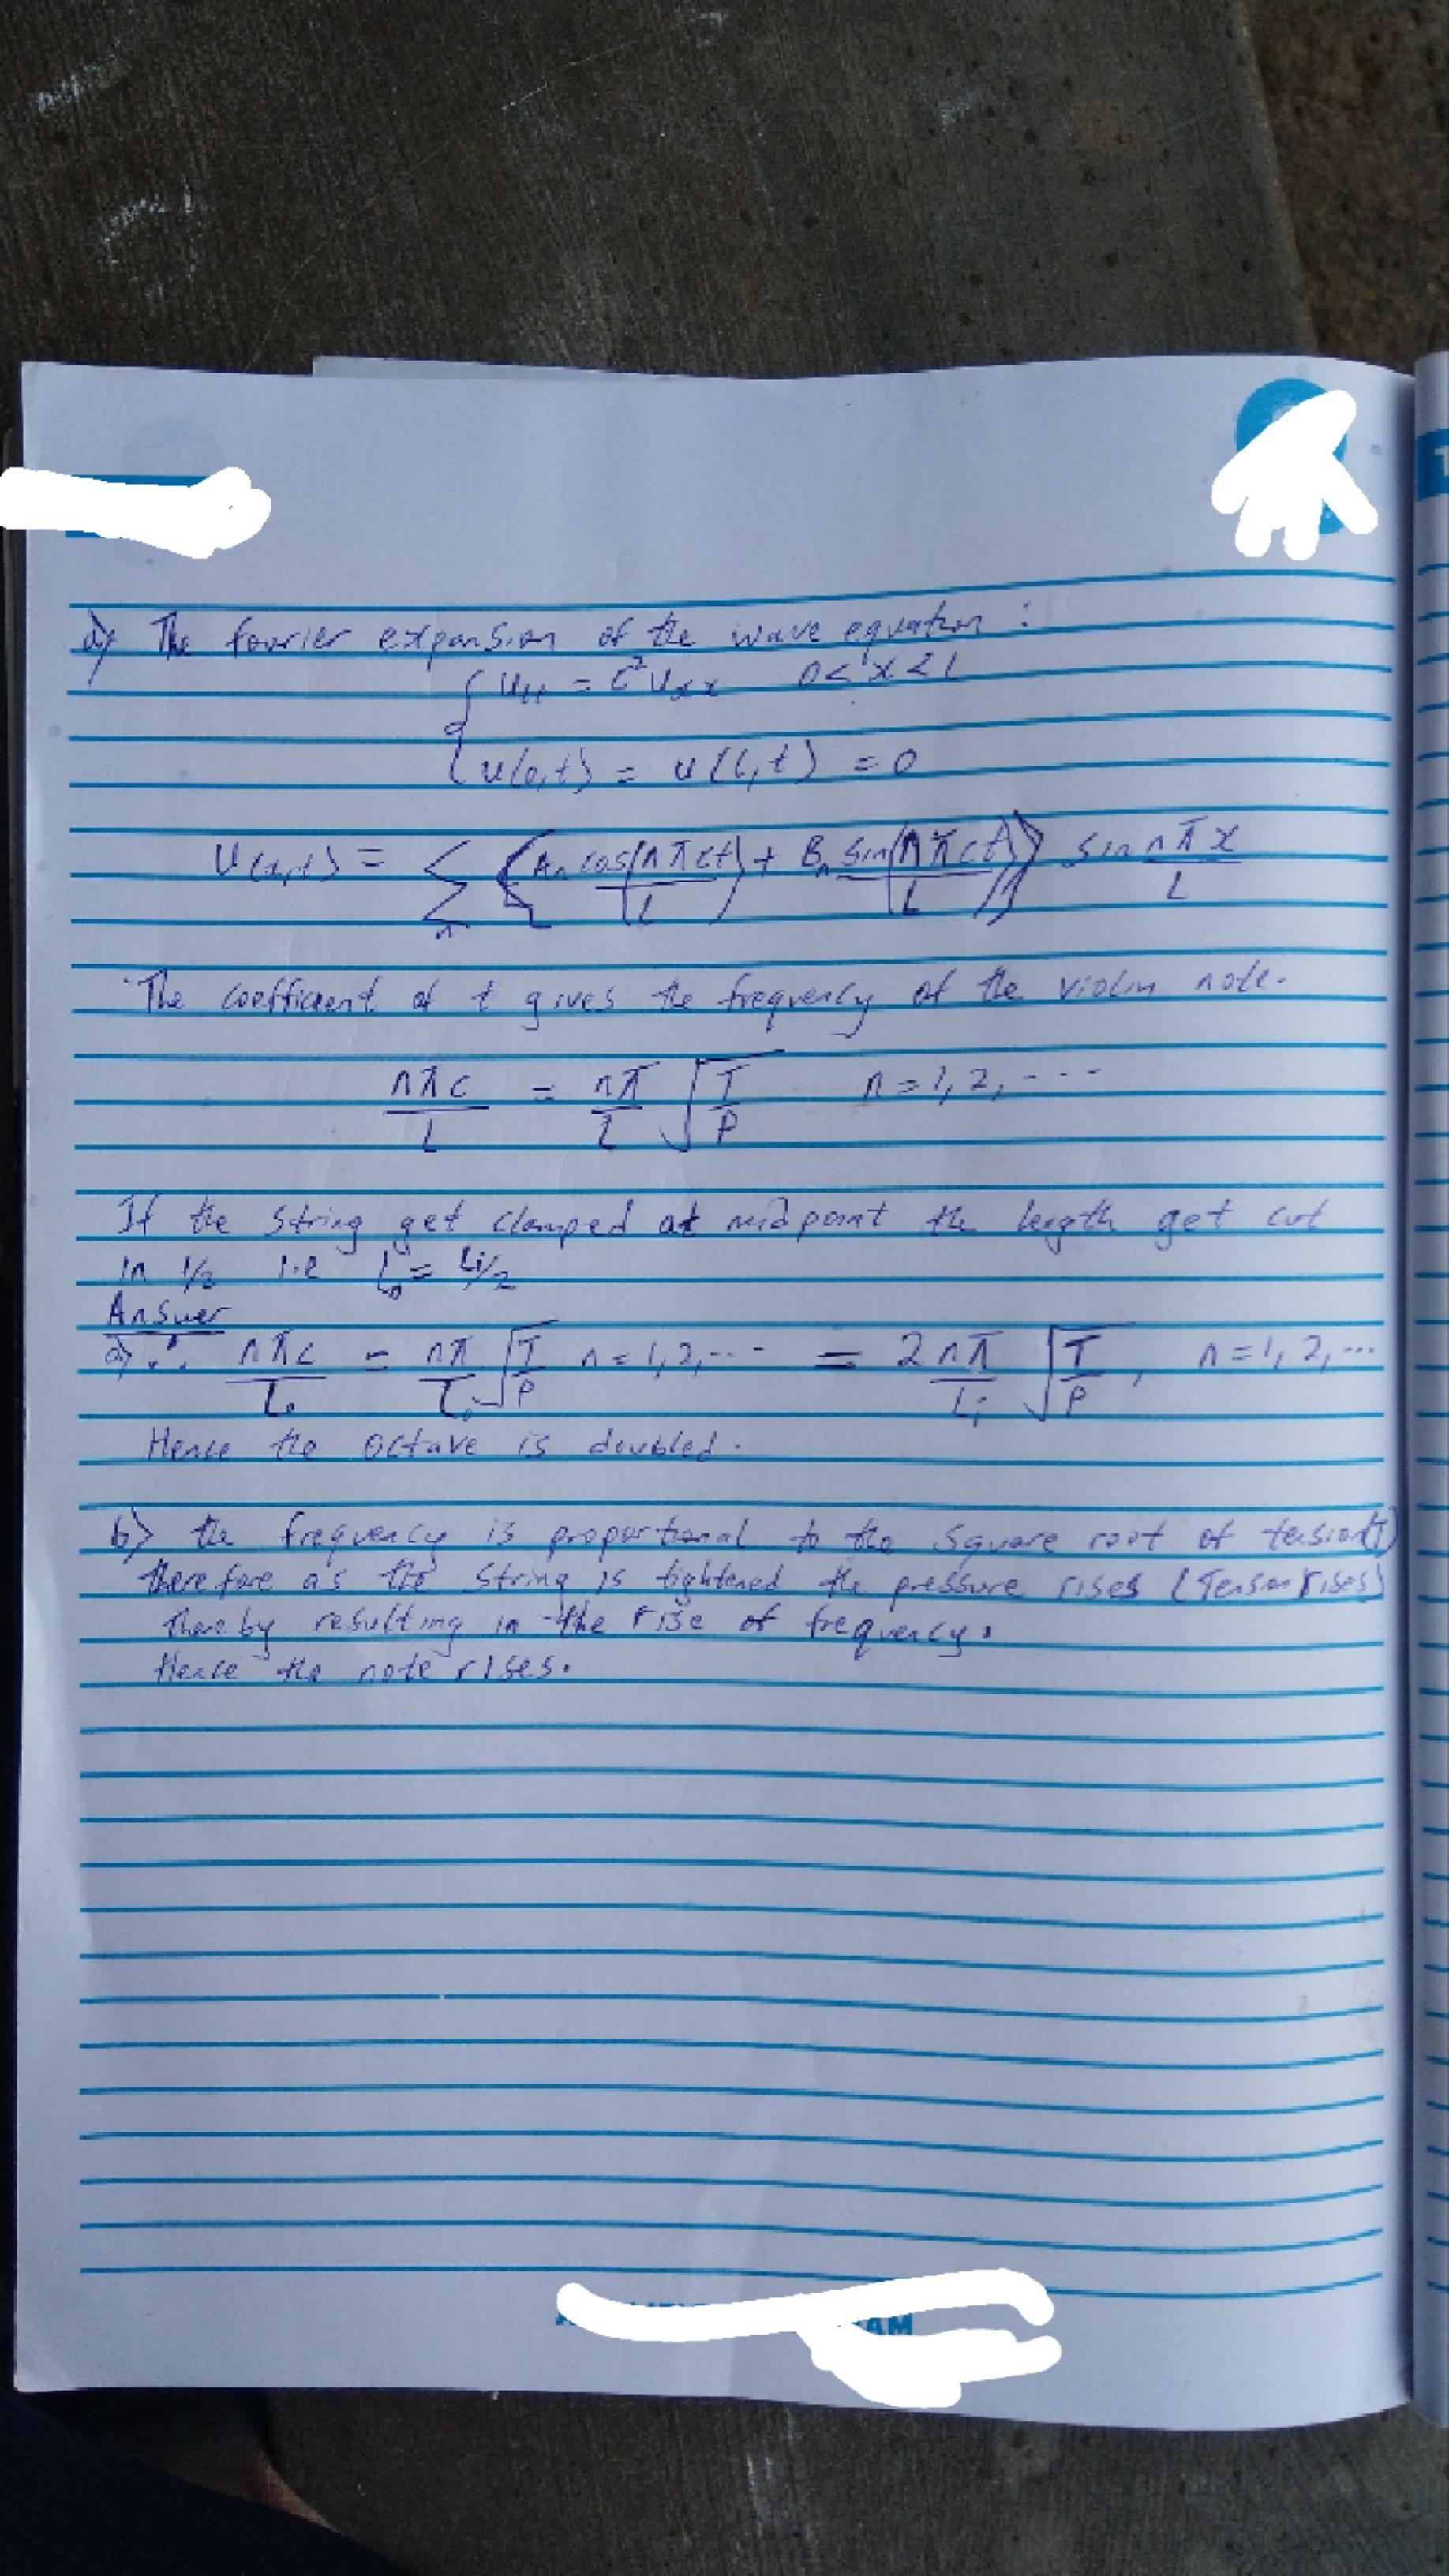 a) The fourier expansion of the wave equation :
{ Utt = C² Uxx 0 < x < l
{ u(0,t) = u(l,t) = 0
U(x,t) = Σn { An cos(nπct/L) + Bn sin(nπct/L) } sin nπx/L
The coefficient of t gives the frequency of the violin note.
nπc/L = nπ/L √T/ρ n = 1, 2, ----
If the string get clamped at midpoint the length get cut
in 1/2 i.e L₀ = Li/2
Answer
a) ∴ nπc/L₀ = nπ/L₀ √T/ρ n = 1, 2, ---- = 2nπ/Li √T/ρ, n = 1, 2, ...
Hence the octave is doubled.
b) the frequency is proportional to the square root of tension(T)
therefore as the string is tightened the pressure rises (Tension rises)
thereby resulting in the rise of frequency.
Hence the note rises.
AM
1